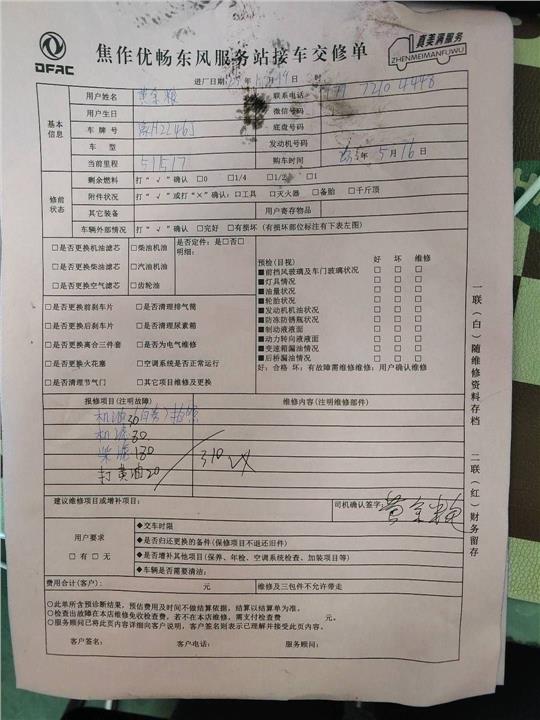 DFAC
焦作优畅东风服务站接车交修单
真美满服务
ZHENMEIMANFUWU
进厂日期: 年 月 19 日 时
基本信息
用户姓名 黄金粮 联系电话 7210 4448
用户生日 微信号码
车牌号 底盘号
车型 发动机号码
当前里程 51517 购车时间 年 5 月 16 日
修前状态
剩余燃料 打"√"确认 □0 □1/4 □1/2 □1
附件状况 打"√"或打"×"确认:□工具 □灭火器 □备胎 □千斤顶
其它装备 用户寄存物品
车辆外部情况 打"√"确认 □完好 □有损坏 (有损坏部位标注有下表左图)
□是否更换机油滤芯 □柴油机油 是否定件: 是□否□
□是否更换柴油滤芯 □汽油机油 明细:
□是否更换空气滤芯 □齿轮油
□是否更换前刹车片 □是否清理排气筒
□是否更换后刹车片 □是否清理尿素箱
□是否更换离合三件套 □是否为电气维修
□是否更换火花塞 □空调系统是否正常运行
□是否清理节气门 □其它项目维修及更换
预检(目视) 好 坏 维修
■前挡风玻璃及车门玻璃状况 □ □ □
■灯具情况 □ □ □
■油量状况 □ □ □
■轮胎状况 □ □ □
■发动机机油状况 □ □ □
■防冻防锈瓶状况 □ □ □
■制动液液面 □ □ □
■动力转向液液面 □ □ □
■变速箱漏油情况 □ □ □
■后桥漏油情况 □ □ □
好:合格 坏:有故障需维修维修:用户确认维修
报修项目(注明故障) 维修内容(注明维修部件)
机油30(自带)拍照
机滤 30
柴滤 130
打黄油20
310
建议维修项目或增补项目: 司机确认签字: 黄金粮
用户要求
□ 有 □ 无
◆交车时限
◆是否归还更换的备件(保修项目不退还旧件)
◆是否增补其他项目(保养、年检、空调系统检查、加装项目等)
◆车辆是否需要清油:
费用合计(客户): 元 维修及三包件不允许带走
○此单所含预诊断结果,预估费用及时间不做结算依据,结算以结算单为准。
○检查出故障在本店维修免收检查费,若不在本店维修,需支付检查费 元。
○服务顾问已将此页内容详细向客户说明,客户签名则表示已理解并接受此页内容。
客户签名: 客户电话: 服务顾问:
一联(白)随维修资料存档
二联(红)财务留存